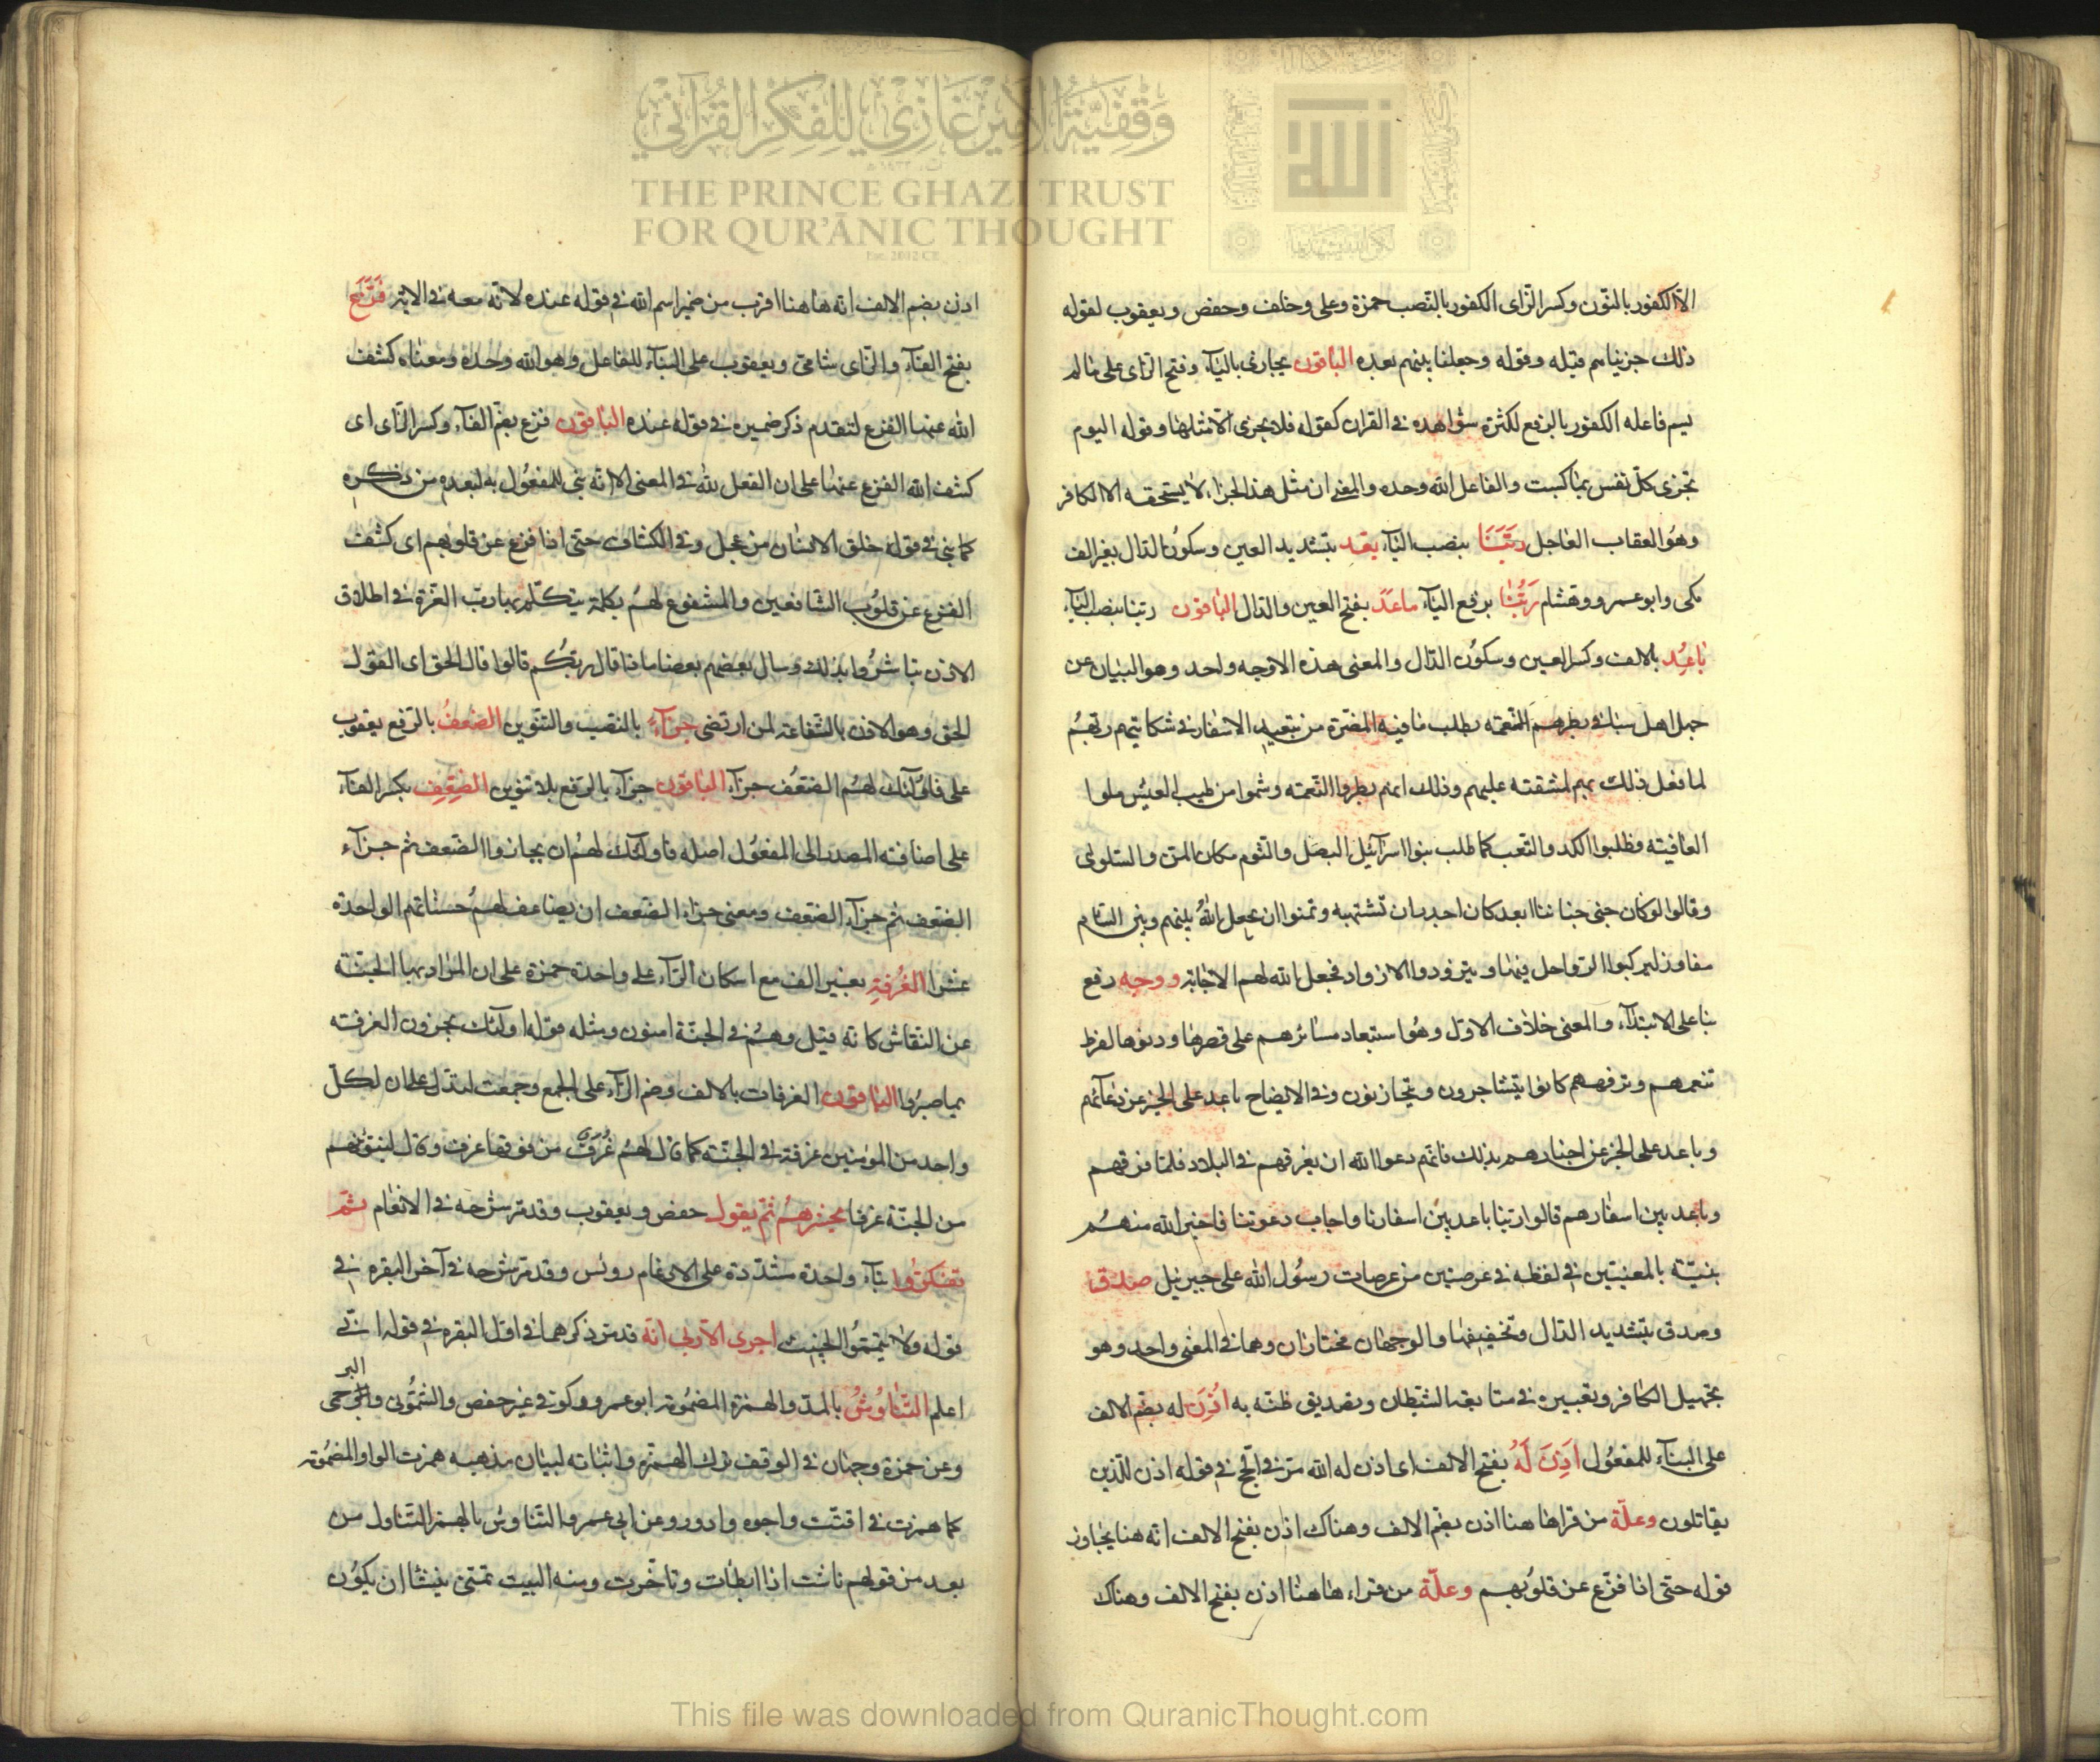 وقفية الأمير غازي للفكر القرآني
THE PRINCE GHAZI TRUST
FOR QUR'ĀNIC THOUGHT
الله
الا الكفور بالنون وكسر الزاى الكفور بالنصب حمزة وعلى وخلف وحفص ويعقوب لقوله
ذلك جزيناهم قبله وقوله وجعلنا بينهم بعده الباقون يجازى بالياء وفتح الزاى على ما لم
يسم فاعله الكفور بالرفع لكثرة شواهده فى القران كقوله فلا يجزى الا مثلها وقوله اليوم
تجزى كل نفس بما كسبت والفاعل الله وحده والمعنى ان مثل هذا الجزاء لا يستحقه الا الكافر
وهو العقاب العاجل ربنا بنصب الباء بعد بتشديد العين وسكون الدال بغير الف
مكى وابو عمرو وهشام ربنا برفع الباء باعد بفتح العين والدال الباقون ربنا بنصب الباء
باعد بالالف وكسر العين وسكون الدال والمعنى هذه الاوجه واحد وهو البيان عن
جهل اهل سبا فى بطرهم النعمة بطلب ما فيه المضرة من تبعيد الاسفار فى شكايتهم ربهم
لما فعل ذلك بهم لمشقته عليهم وذلك انهم بطروا النعمة وشموا من طيب العيش ملوا
العافية وطلبوا الكد والتعب كما طلب بنوا اسرآئيل البصل والثوم مكان المن والسلوى
وقالوا لوكان جنى جناننا ابعد كان اجدر ان تشتهيه وتمنوا ان يجعل الله بينهم وبين الشام
مفاوز ليركبوا الرواحل فيها ويتزودوا الازواد فجعل الله لهم الاجابة ووجه رفع
بنا على الابتدآء والمعنى خلاف الاول وهو استبعاد مسائرهم على قصرها ودنوها لفرط
تنعمهم وترفههم كانوا يتشاجرون ويتحازنون وفى الايضاح باعد على الخبر عن دعآئهم
وباعد على الخبر عن اخبارهم بذلك فانهم دعوا الله ان يفرقهم فى البلاد فلما فرقهم
وباعد بين اسفارهم قالوا ربنا باعد بين اسفارنا واجاب دعوتنا فاخبر الله منهم
بنيته بالمعنيين فى لفظه فى عرضتين من عرضات رسول الله على جبرئيل صدق
وصدق بتشديد الدال وتخفيفها والوجهان مختاران وهما فى المعنى واحد وهو
تجهيل الكافر وتعييره فى متابعة الشيطان وتصديق ظنه به اذن له بضم الالف
على البنآء للمفعول اذن له بفتح الالف اى اذن له الله مر فى الحج فى قوله اذن للذين
يقاتلون وعلة من قرا ها هنا اذن بضم الالف وهناك اذن بفتح الالف انه هنا يجاوز
قوله حتى اذا فزع عن قلوبهم وعلة من قراء هاهنا اذن بفتح الالف وهناك
اذن بضم الالف انه هاهنا اقرب من ضمير اسم الله فى قوله عنده لانه معه فى الاية فزع
بفتح الفاء والزاى شامى ويعقوب على البنآء للفاعل وهو الله وحده ومعناه كشف
الله عنها الفزع لتقدم ذكر ضميره فى قوله عنده الباقون فزع بضم الفآء وكسر الزاى اى
كشف الله الفزع عنها على ان الفعل لله فى المعنى الا انه بنى للمفعول به لبعده من ذكره
كما بنى فى قوله خلق الانسان من عجل وفى الكشاف حتى اذا فزع عن قلوبهم اى كشف
الفزع عن قلوب الشافعين والمشفوع لهم بكلمة يتكلم بها رب العزة فى اطلاق
الاذن تباشروا بذلك وسال بعضهم بعضا ماذا قال ربكم قالوا قال الحق اى القول
الحق وهو الاذن بالشفاعة لمن ارتضى جزآء بالنصب والتنوين الضعف بالرفع يعقوب
على فاولآئك لهم الضعف جزآء الباقون جزآء بالرفع بلا تنوين الضعف بكسر الفآء
على اضافة المصدر الى المفعول اصله فاولآئك لهم ان يجازوا الضعف ثم جزآء
الضعف ثم جزآء الضعف ومعنى جزاء الضعف ان يضاعف لهم حسناتهم الواحدة
عشرا الغرفة بغير الف مع اسكان الرآء على واحدة حمزة على ان المراد بها الجنة
عن النقاش كانه قيل وهم فى الجنة امنون ومثله قوله اولآئك يجزون الغرفة
بما صبروا الباقون الغرفات بالالف وضم الرآء على الجمع وجمعت لتدل على ان لكل
واحد من المؤمنين غرفة فى الجنة كما قال لهم غرف من فوقها غرف وقال لنبوئنهم
من الجنة غرفا يحشرهم ثم يقول حفص ويعقوب وقد مر شرحه فى الانعام ثم
تفكروا بتآء واحدة مشددة على الادغام رويس وقد مر شرحه فى آخر البقرة فى
قوله ولا تيمموا الخبيث اجرى الا ربى انه قد مر ذكرهما فى اول البقرة فى قوله انى
اعلم التناوش بالمد والهمزة المضمومة ابو عمرو وكوفى غير حفص والشمونى والبرجمى
البر
وعن حمزة وجهان فى الوقف ترك الهمزة واثباته لبيان مذهبه همزت الواو المضمومة
كما همزت فى اقتت واجوه وادور وعن ابى عمرو التناوش بالهمز التناول من
بعد من قولهم ناشت اذا ابطأت وتاخرت ومنه البيت تمنى نئيشا ان يكون
This file was downloaded from QuranicThought.com